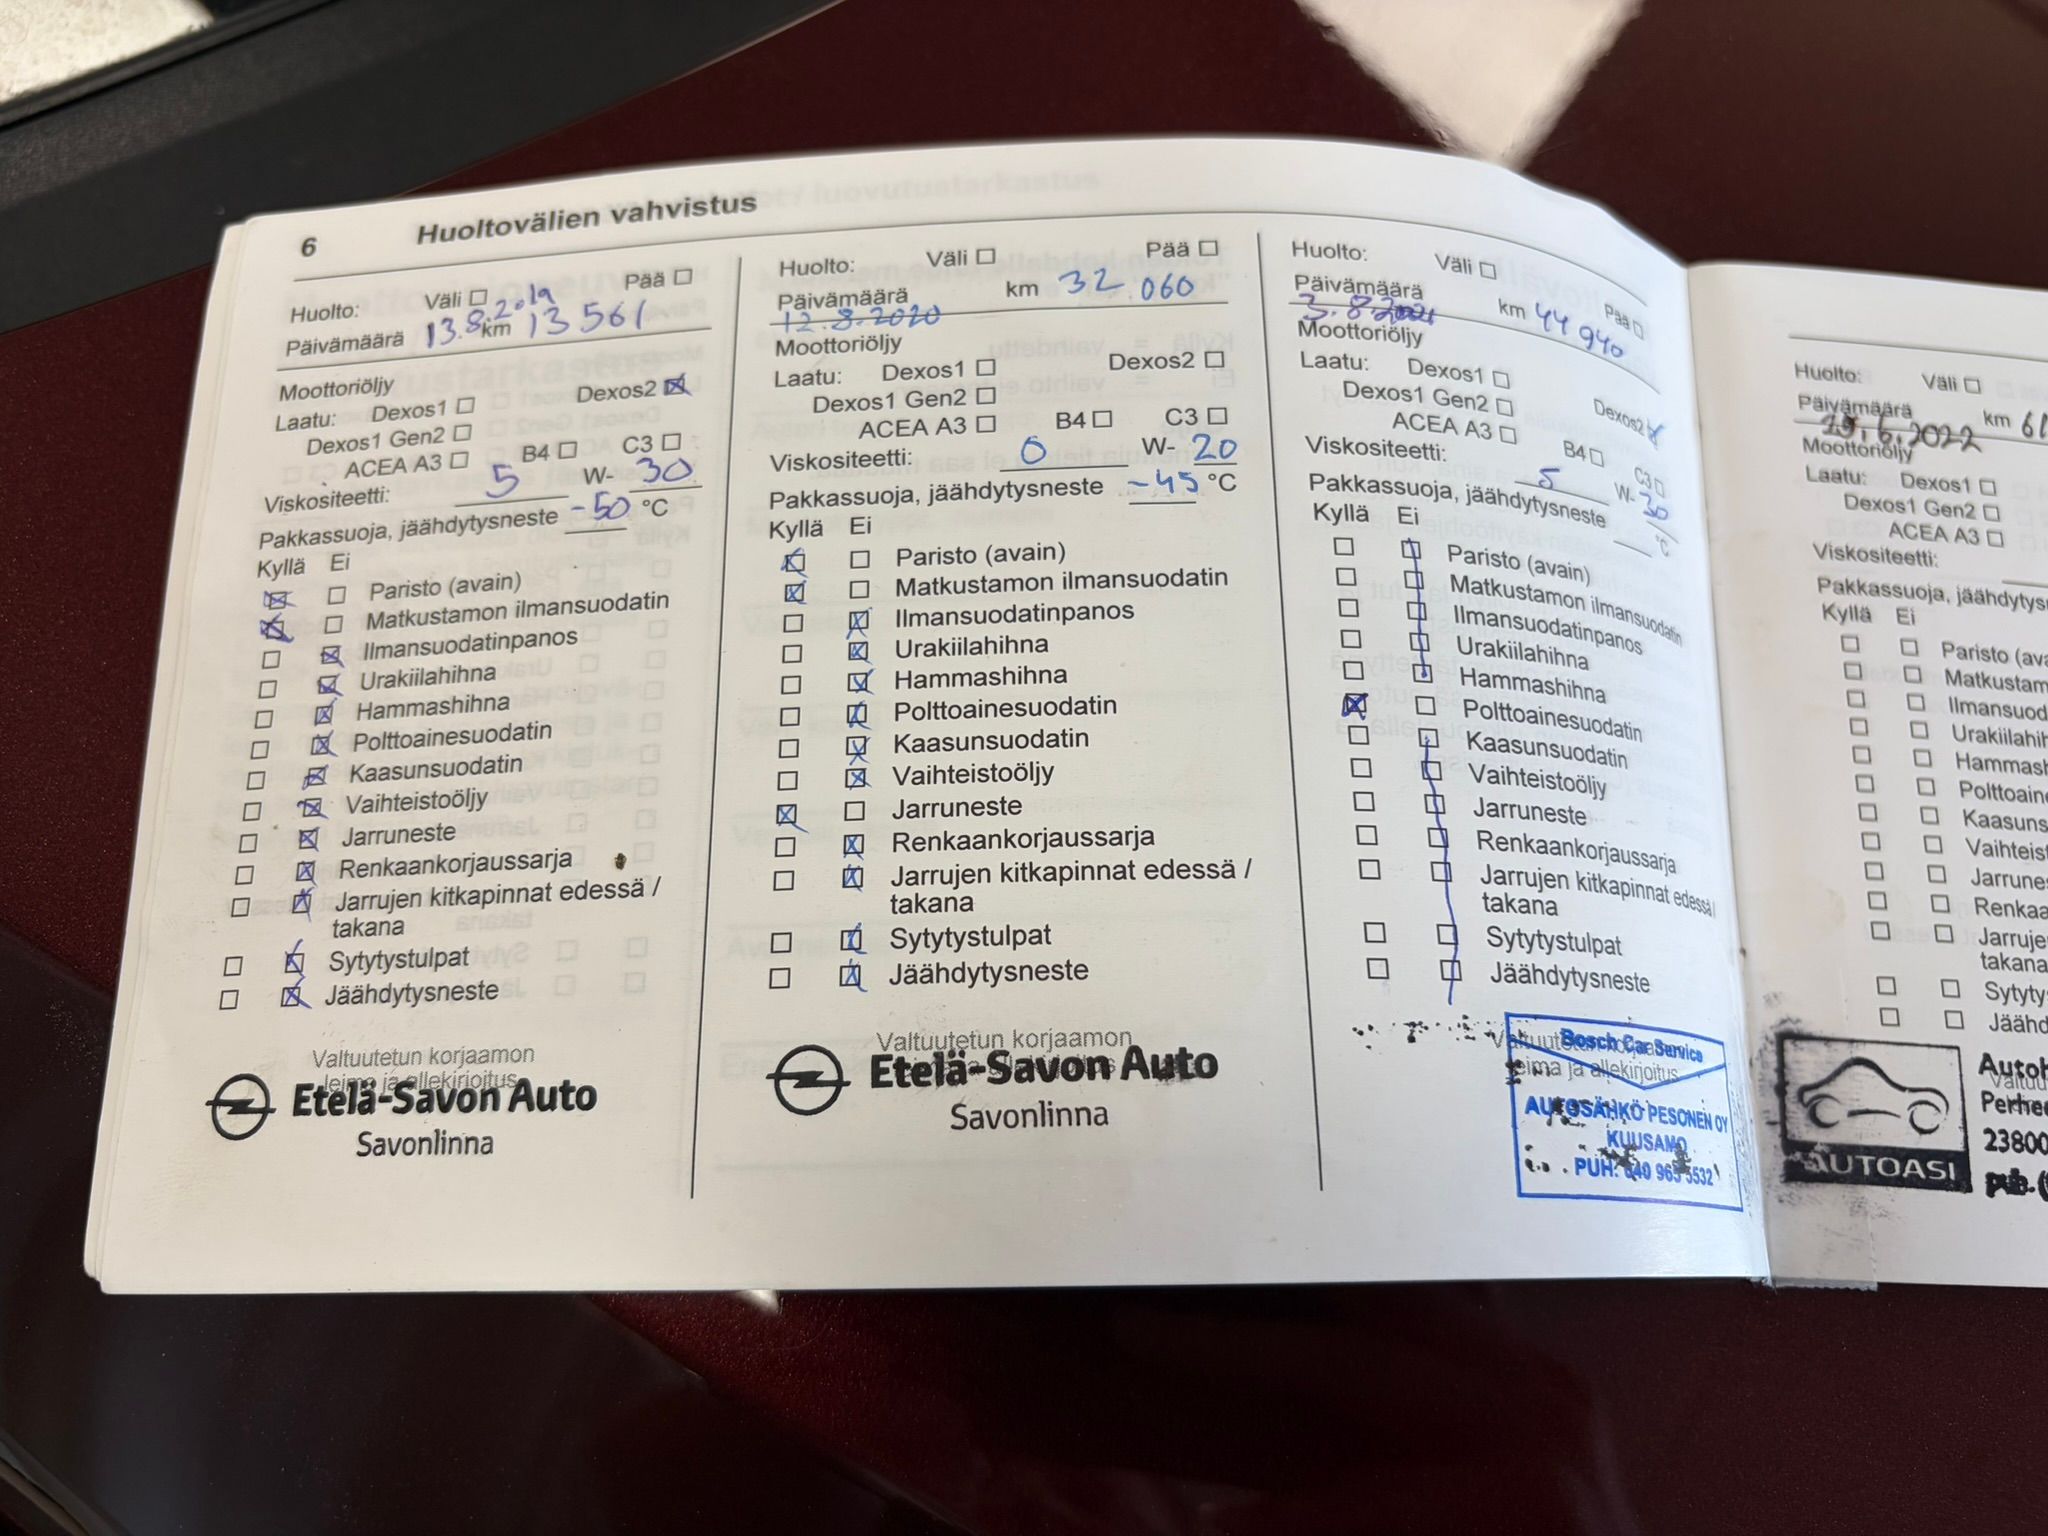 6 Huoltovälien vahvistus
Huolto: Väli Pää
Päivämäärä 13.8.2019 km 13 561
Moottoriöljy
Laatu: Dexos1 Dexos2
Dexos1 Gen2
ACEA A3 B4 C3
Viskositeetti: 5 W- 30
Pakkassuoja, jäähdytysneste -50 °C
Kyllä Ei
Paristo (avain)
Matkustamon ilmansuodatin
Ilmansuodatinpanos
Urakiilahihna
Hammashihna
Polttoainesuodatin
Kaasunsuodatin
Vaihteistoöljy
Jarruneste
Renkaankorjaussarja
Jarrujen kitkapinnat edessä /
takana
Sytytystulpat
Jäähdytysneste
Valtuutetun korjaamon
leima ja allekirjoitus
Etelä-Savon Auto
Savonlinna
Huolto: Väli Pää
Päivämäärä km 32 060
12.8.2020
Moottoriöljy
Laatu: Dexos1 Dexos2
Dexos1 Gen2
ACEA A3 B4 C3
Viskositeetti: 0 W- 20
Pakkassuoja, jäähdytysneste -45 °C
Kyllä Ei
Paristo (avain)
Matkustamon ilmansuodatin
Ilmansuodatinpanos
Urakiilahihna
Hammashihna
Polttoainesuodatin
Kaasunsuodatin
Vaihteistoöljy
Jarruneste
Renkaankorjaussarja
Jarrujen kitkapinnat edessä /
takana
Sytytystulpat
Jäähdytysneste
Valtuutetun korjaamon
Etelä-Savon Auto
Savonlinna
Huolto: Väli Pää
Päivämäärä km 44 940
3.8.2021
Moottoriöljy
Laatu: Dexos1 Dexos2
Dexos1 Gen2
ACEA A3 B4 C3
Viskositeetti: 5 W- 30
Pakkassuoja, jäähdytysneste °C
Kyllä Ei
Paristo (avain)
Matkustamon ilmansuodatin
Ilmansuodatinpanos
Urakiilahihna
Hammashihna
Polttoainesuodatin
Kaasunsuodatin
Vaihteistoöljy
Jarruneste
Renkaankorjaussarja
Jarrujen kitkapinnat edessä /
takana
Sytytystulpat
Jäähdytysneste
Valtuutetun korjaamon
leima ja allekirjoitus
Bosch Car Service
AUTOSÄHKÖ PESONEN OY
KUUSAMO
PUH. 040 965 5532
Huolto: Väli
Päivämäärä km 61
6.2022
Moottoriöljy
Laatu: Dexos1
Dexos1 Gen2
ACEA A3
Viskositeetti:
Pakkassuoja, jäähdytys
Kyllä Ei
Paristo (ava
Matkustam
Ilmansuod
Urakiilahih
Hammash
Polttoaine
Kaasuns
Vaihteist
Jarrunes
Renkaa
Jarruje
takana
Sytyty
Jäähd
AUTOASI
Autoh
Perhe
23800
puh. (